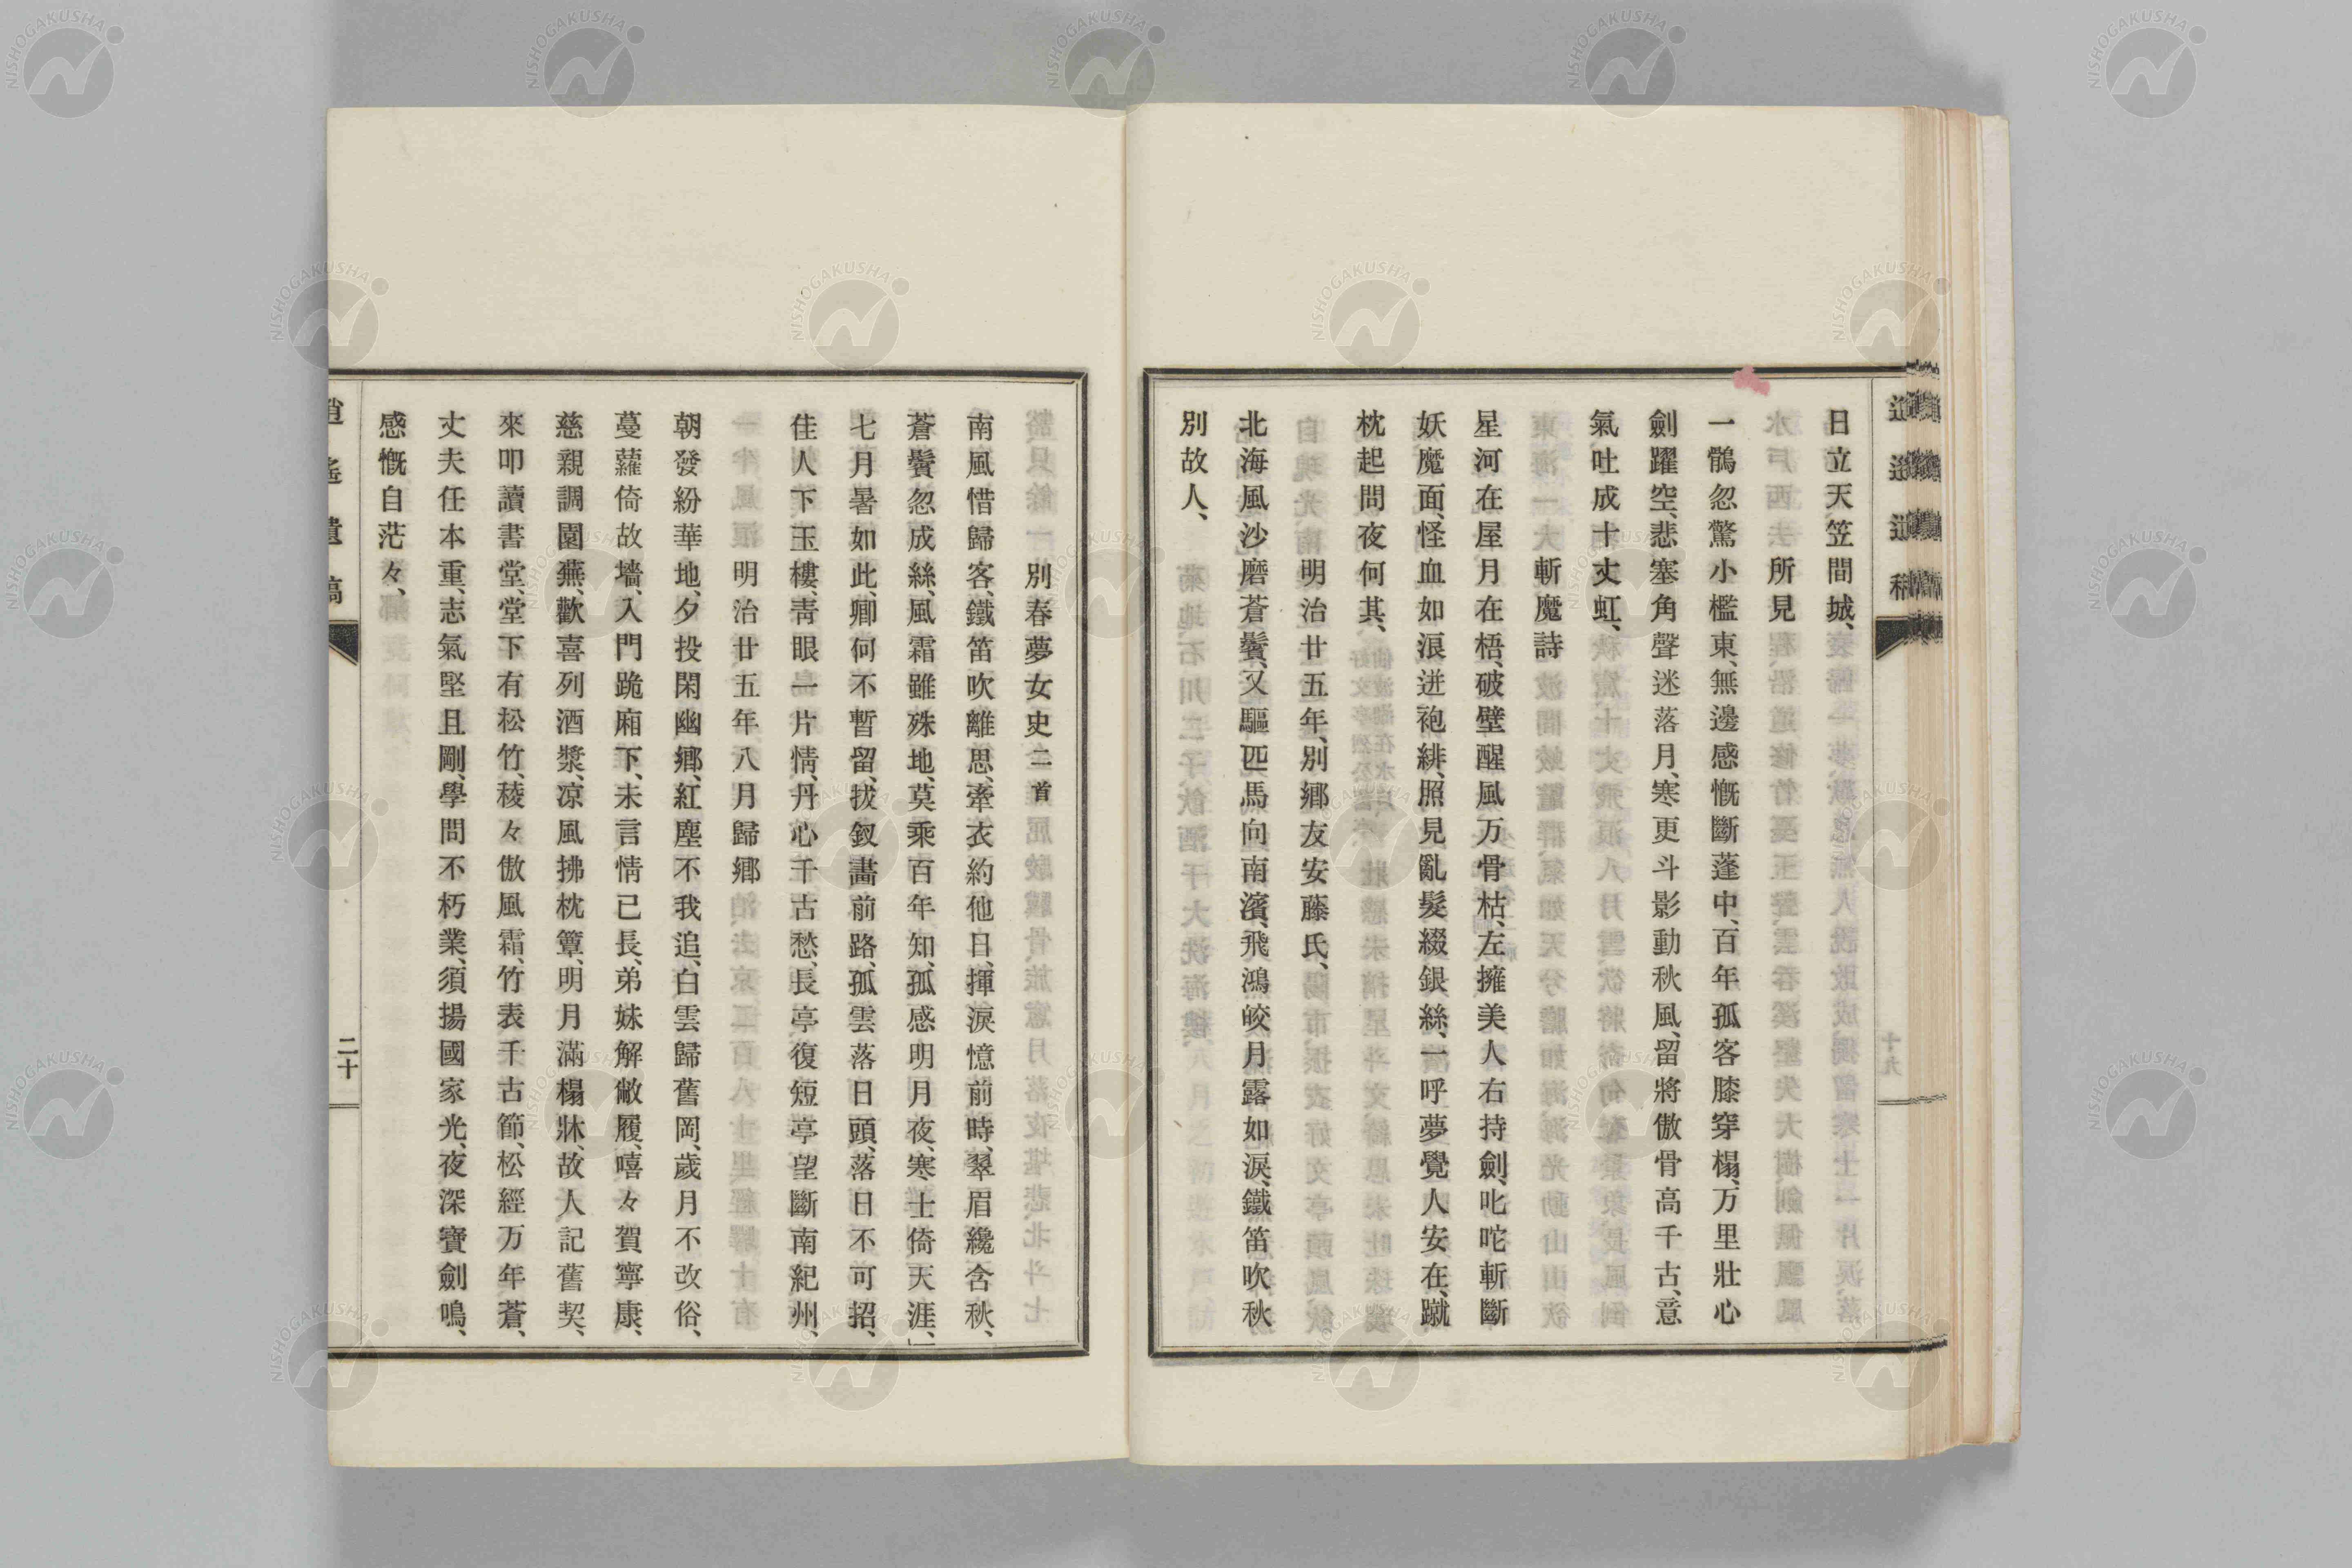 日立天笠間城、
所見
一鶻忽驚小檻東、無邊感慨斷蓬中、百年孤客膝穿榻、万里壯心
劍躍空、悲塞角聲迷落月、寒更斗影動秋風、留將傲骨高千古、意
氣吐成十丈虹、
斬魔詩
星河在屋月在梧、破壁醒風万骨枯、左擁美人右持劍、叱咜斬斷
妖魔面、怪血如浪迸袍緋、照見亂髮綴銀絲、一呼夢覺人安在、蹴
枕起問夜何其、
明治廿五年、別鄉友安藤氏、
北海風沙磨蒼鬢、又驅匹馬向南濱、飛鴻皎月露如淚、鐵笛吹秋
別故人、
別春夢女史二首
南風惜歸客、鐵笛吹離思、牽衣約他日、揮淚憶前時、翠眉纔含秋、
蒼鬢忽成絲、風霜雖殊地、莫乘百年知、孤感明月夜、寒士倚天涯、」
七月暑如此、卿何不暫留、拔釵畵前路、孤雲落日頭、落日不可招、
佳人下玉樓、靑眼一片情、丹心千古愁、長亭復短亭望斷南紀州、
明治廿五年八月歸鄉
朝發紛華地、夕投閑幽鄉、紅塵不我追、白雲歸舊岡、歲月不改俗、
蔓蘿倚故墻、入門跪廂下、未言情已長、弟妹解敝履、嘻々賀寧康、
慈親調園蕪、歡喜列酒漿、凉風拂枕簟、明月滿榻牀、故人記舊契、
來叩讀書堂、堂下有松竹、稜々傲風霜、竹表千古節、松經万年蒼、
丈夫任本重、志氣堅且剛、學問不朽業、須揚國家光、夜深寶劍鳴、
感慨自茫々、
逍遙遺稿
二十